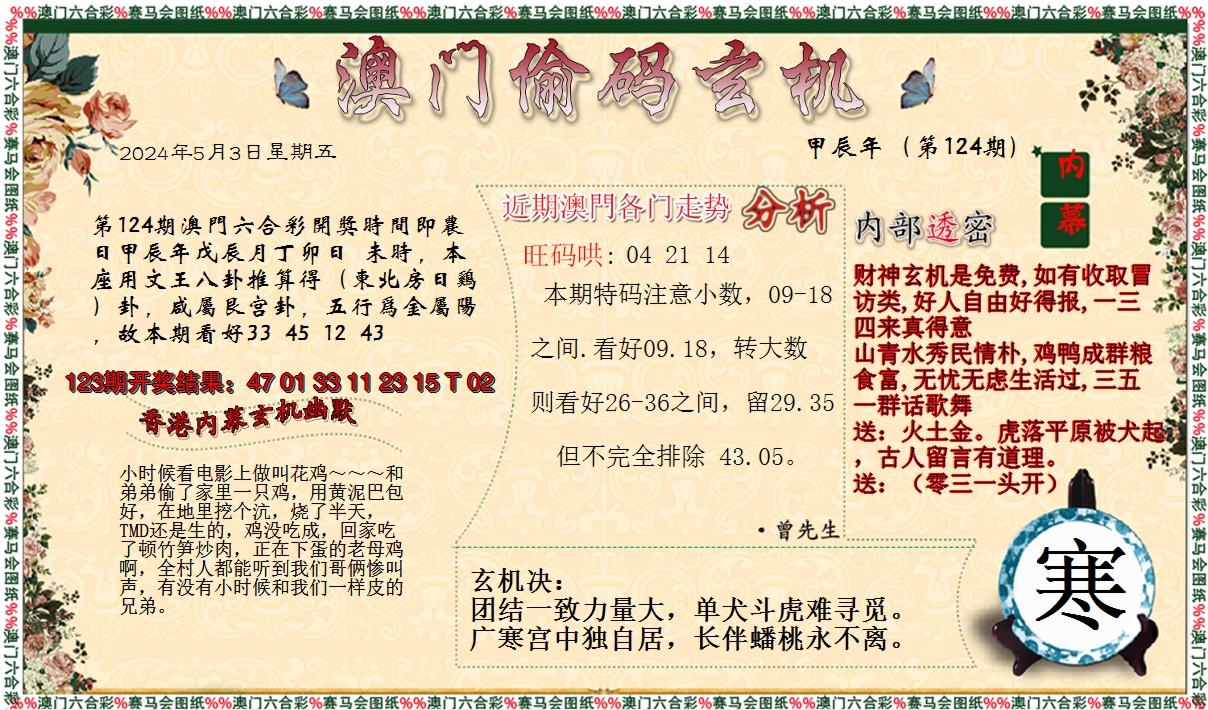 %%澳门六合彩%赛马会图纸%%澳门六合彩%赛马会图纸%%澳门六合彩%赛马会图纸%%澳门六合彩%赛马会图纸%%澳门六合彩%赛马会图纸%%澳门六合彩%赛马会图纸%%
澳门偷码玄机
2024年5月3日星期五
甲辰年 （第124期）
内幕
第124期澳門六合彩開獎時間即農
日甲辰年戊辰月丁卯日 未時，本
座用文王八卦推算得（東北房日鷄
）卦，咸屬艮宫卦，五行爲金屬陽
，故本期看好33 45 12 43
123期开奖结果：47 01 33 11 23 15 T 02
香港内幕玄机幽默
小时候看电影上做叫花鸡～～～和
弟弟偷了家里一只鸡，用黄泥巴包
好，在地里挖个沆，烧了半天，
TMD还是生的，鸡没吃成，回家吃
了顿竹笋炒肉，正在下蛋的老母鸡
啊，全村人都能听到我们哥俩惨叫
声，有没有小时候和我们一样皮的
兄弟。
近期澳門各门走势 分析
旺码哄: 04 21 14
本期特码注意小数，09-18
之间.看好09.18，转大数
则看好26-36之间，留29.35
但不完全排除 43.05。
·曾先生
内部透密
财神玄机是免费,如有收取冒
访类,好人自由好得报,一三
四来真得意
山青水秀民情朴,鸡鸭成群粮
食富,无忧无虑生活过,三五
一群话歌舞
送：火土金。虎落平原被犬起
，古人留言有道理。
送：（零三一头开）
玄机决：
团结一致力量大，单犬斗虎难寻觅。
广寒宫中独自居，长伴蟠桃永不离。
寒
%%澳门六合彩%赛马会图纸%%澳门六合彩%赛马会图纸%%澳门六合彩%赛马会图纸%%澳门六合彩%赛马会图纸%%澳门六合彩%赛马会图纸%%澳门六合彩%赛马会图纸%%